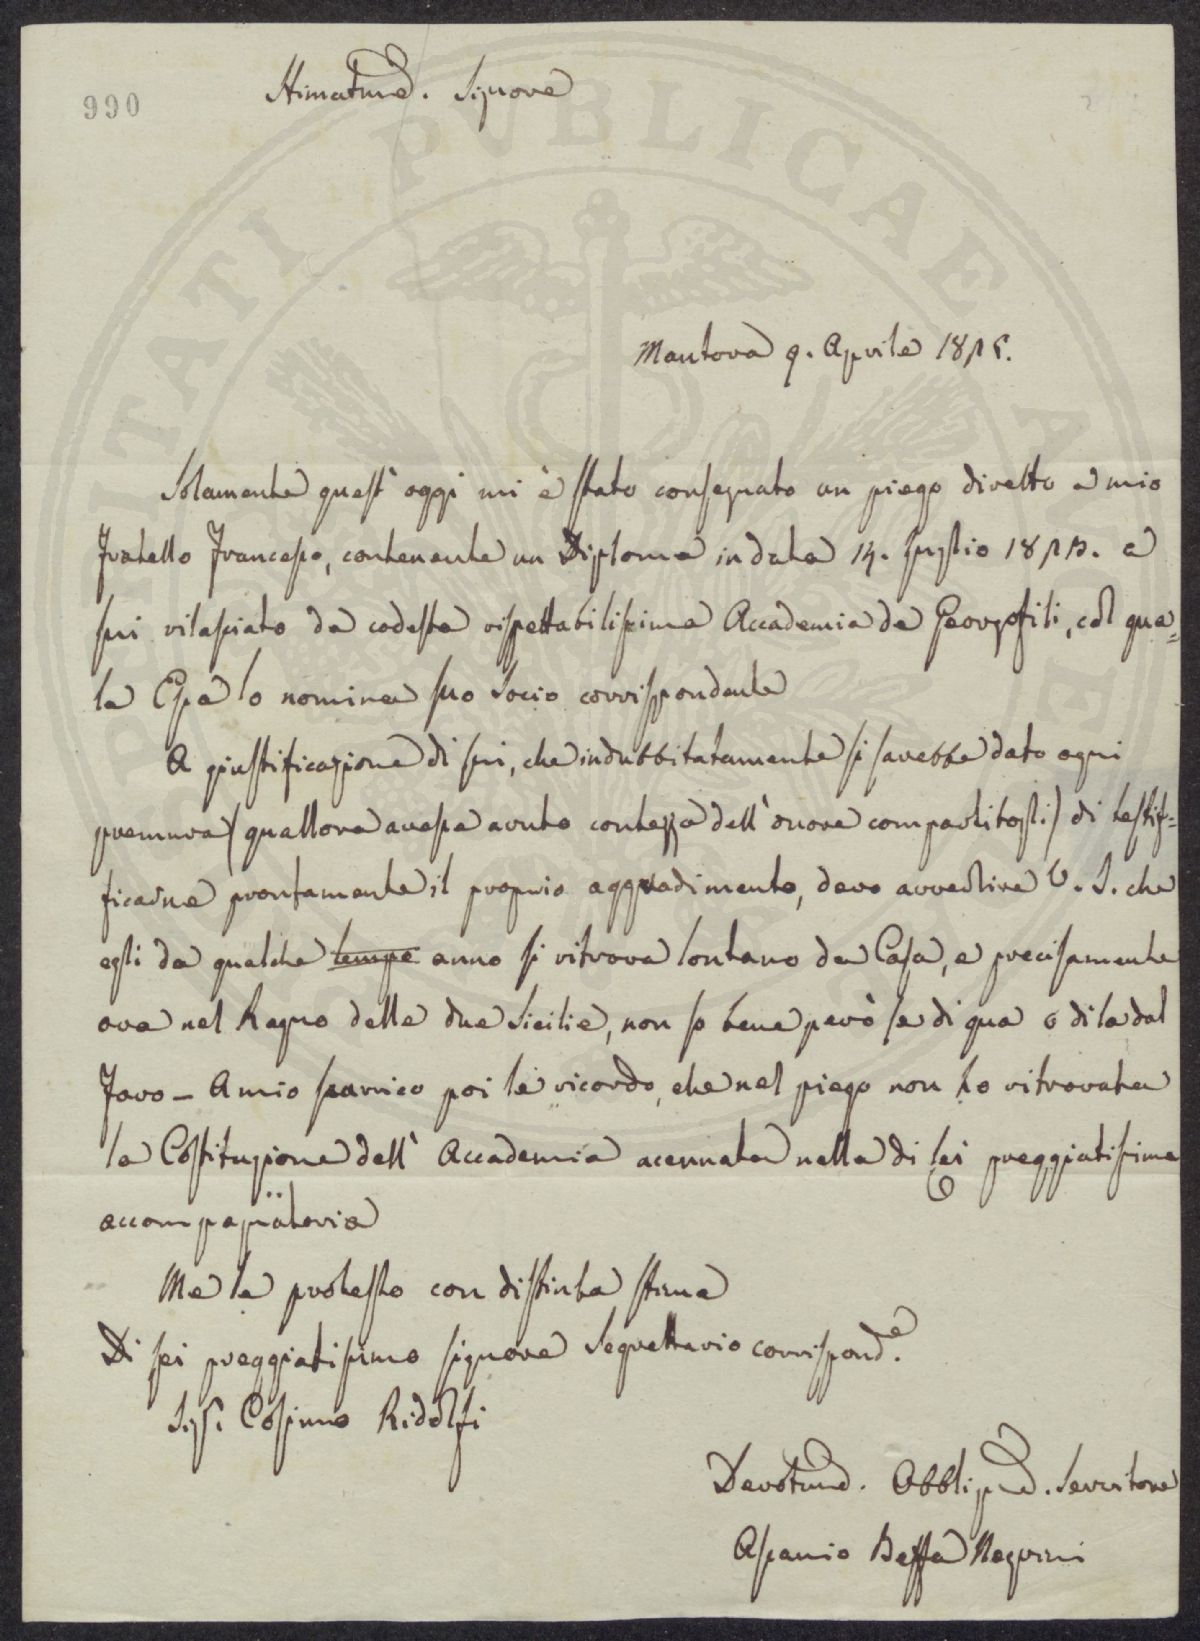 990
Stimatmo. Signore
Mantova 9. Aprile 1815.
Solamente quest' oggi mi è stato consegnato un piego diretto a mio
Fratello Francesco, contenente un Diploma in data 14. Luglio 1813. a
lui rilasciato da codesta rispettabilissima Accademia de Georgofili, col qua=
le Essa lo nomina suo Socio corrispondente
A giustificazione di lui, che indubbitatamente si sarebbe dato ogni
premura (quallora avesse avuto contezza dell' onore compartitogli) di testif=
ficarne prontamente il proprio aggradimento, devo avvertire V. S. che
egli da qualche tempo anno si ritrova lontano da Casa, e precisamente
ora nel Regno delle due Sicilie, non so bene però se di qua o di la dal
Faro - A mio scarrico poi le ricordo, che nel piego non ho ritrovata
la Costituzione dell' Accademia acennata nella di lei preggiatissima
accompagnatoria
Me le protesto con distinta stima
Di lei preggiatissimo signore Segrettario corrispond.e
Sig. Cosimo Ridolfi
Devotmo. Obbligmo. Servitore
Ascanio Beffa Negrini
PUBLICAE